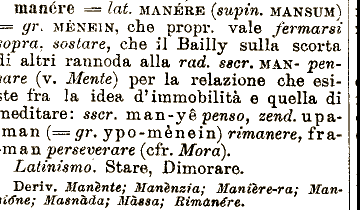 manére = lat. MANÉRE (supin. MANSUM)
= gr. MÉNEIN, che propr. vale fermarsi
sopra. sostare, che il Bailly sulla scorta
di altri rannoda alla rad. sscr. MAN- pen-
sare (v. Mente) per la relazione che esi-
ste fra la idea d'immobilità e quella di
meditare: sscr. man-yê penso, zend. upa-
man (= gr. ypo-mènein) rimanere, fra-
-man perseverare (cfr. Mora).
Latinismo. Stare, Dimorare.
Deriv. Manènte; Manènzia; Manière-ra; Man-
sióne; Masnàda; Màssa; Rimanére.